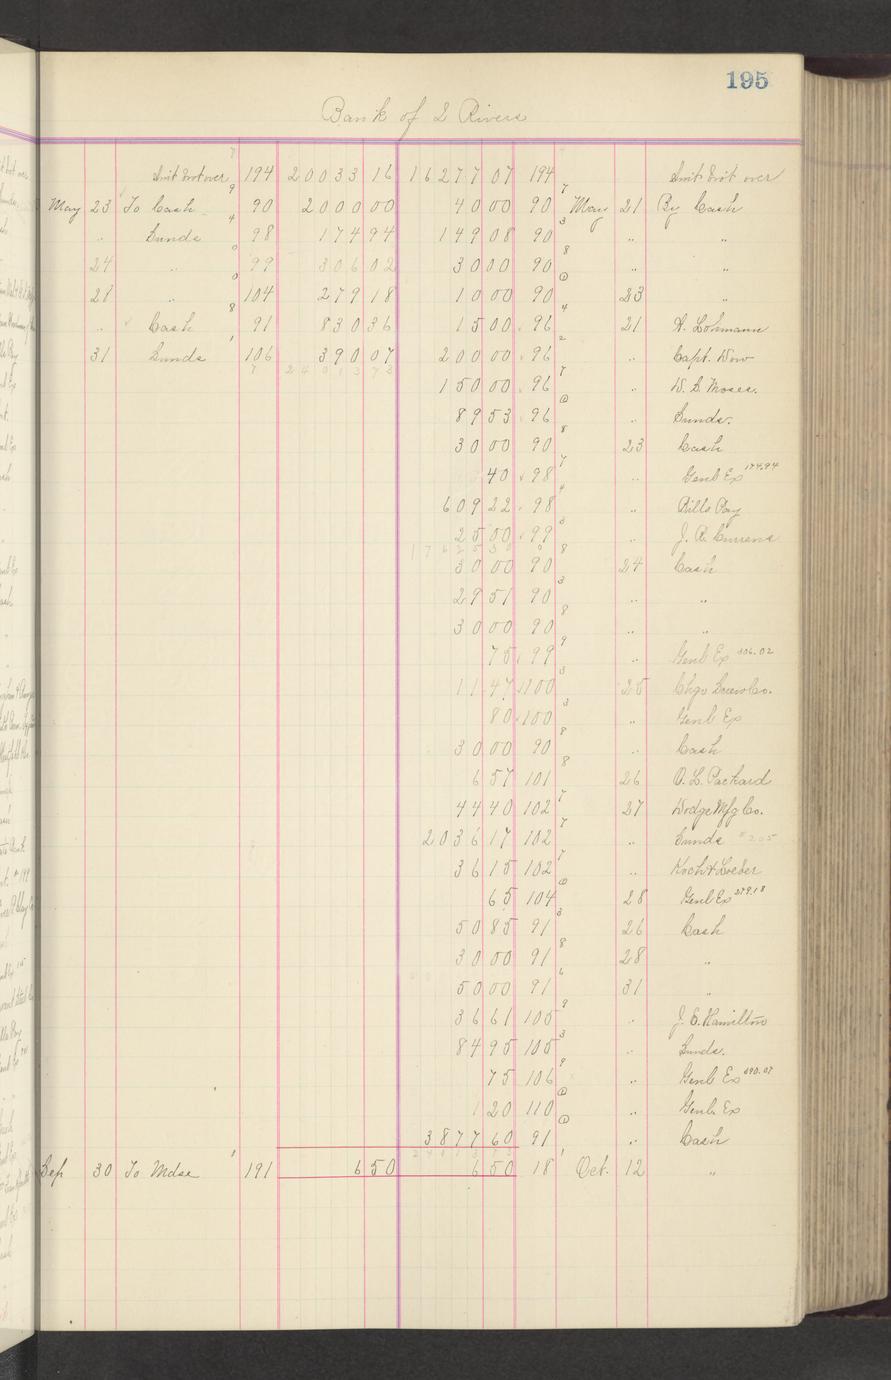 195
Bank of 2 Rivers
Amt brot over 194 20033 16 16277 07 194 Amt brot over
May 23 To Cash 90 2000 00 40 00 90 May 21 By Cash
" Sunds 98 174 94 149 08 90 " "
24 " 99 306 02 30 00 90 " "
28 " 104 279 18 10 00 90 23 "
" Cash 91 830 36 15 00 96 21 A. Lohmann
31 Sunds 106 390 07 200 00 96 " Capt. Dow
24013 73 150 00 96 " W. S. Moses.
89 53 96 " Sunds.
30 00 90 23 Cash
40 98 " Genl Ex 174.94
609 22 98 " Bills Pay
25 00 99 " J. R. Currens
17625 30
30 00 90 24 Cash
29 51 90 " "
30 00 90 " "
75 99 " Genl Ex 306.02
11 47 100 25 Chgo Screw Co.
80 100 " Genl Ex
30 00 90 " Cash
6 57 101 26 O. L. Packard
44 40 102 27 Dodge Mfg Co.
2036 17 102 " Sunds
36 15 102 " Koch & Loeber
65 104 28 Genl Ex 279.18
50 85 91 26 Cash
30 00 91 28 "
50 00 91 31 "
36 61 105 " J. E. Hamilton
84 95 105 " Sunds.
75 106 " Genl Ex 390.07
1 20 110 " Genl Ex
3877 60 91 " Cash
24013 73
Sep 30 To Mdse 191 6 50 6 50 18 Oct. 12 "